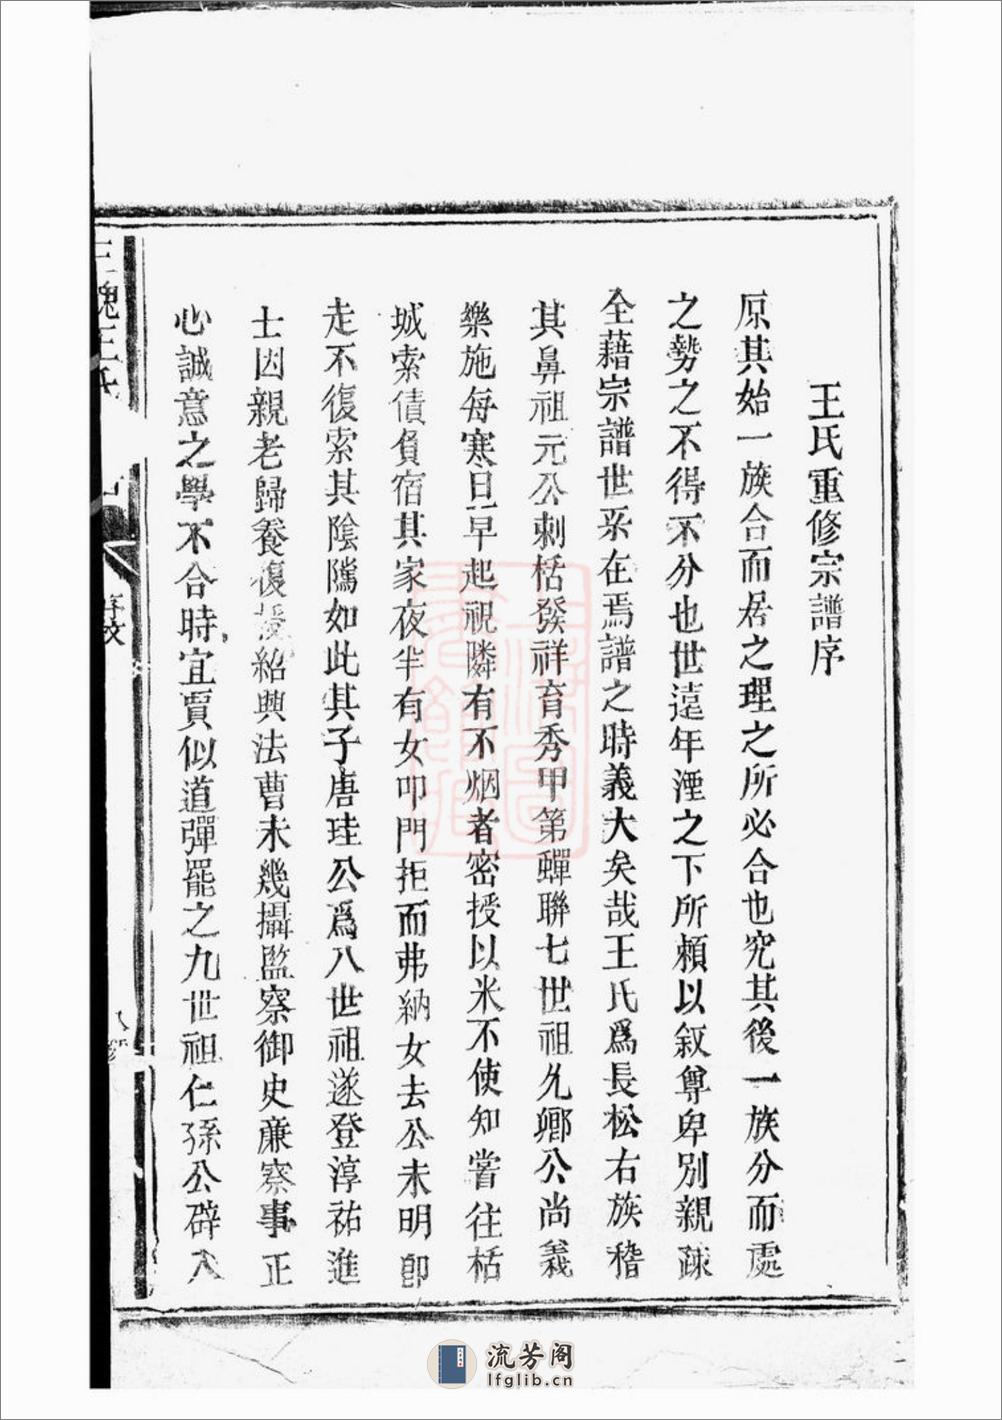 王氏重修宗譜序
原其始一族合而居之理之所必合也究其後一族分而處
之勢之不得不分也世遠年湮之下所賴以叙尊卑別親疎
全藉宗譜世系在焉譜之時義大矣哉王氏爲長松右族稽
其鼻祖元公刺栝發祥育秀甲第蟬聯七世祖允卿公尚義
樂施每寒日早起視隣有不烟者密授以米不使知嘗往栝
城索債負宿其家夜半有女叩門拒而弗納女去公未明卽
走不復索其陰隲如此其子唐珪公爲八世祖遂登淳祐進
士因親老歸養復授紹興法曹未幾攝監察御史亷察事正
心誠意之學不合時宜賈似道彈罷之九世祖仁孫公辟入
三槐王氏
序文
流芳阁
lfglib.cn